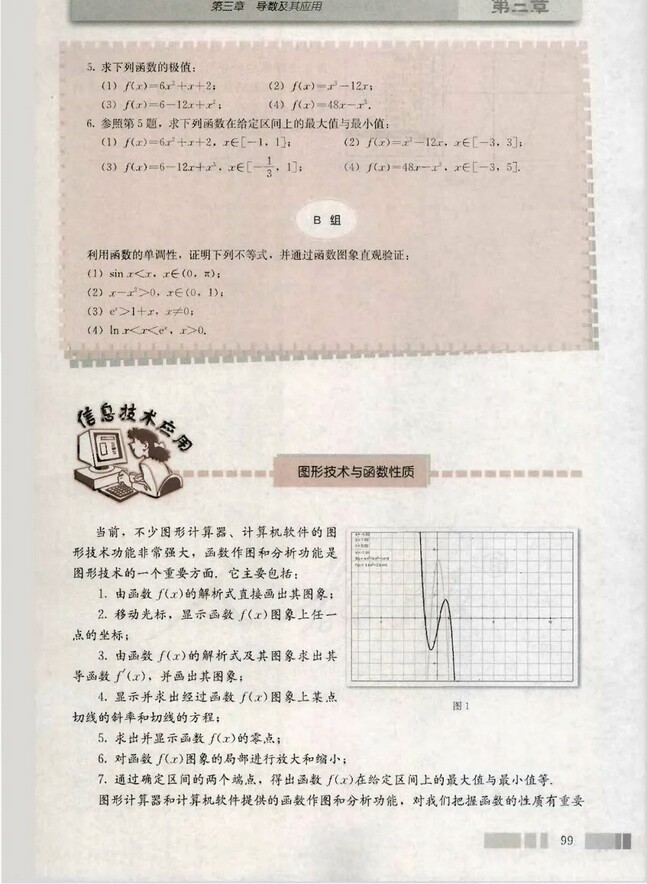 第三章 导数及其应用
第三章
5. 求下列函数的极值：
(1) f(x)=6x²+x+2； (2) f(x)=x³-12x；
(3) f(x)=6-12x+x³； (4) f(x)=48x-x³.
6. 参照第5题，求下列函数在给定区间上的最大值与最小值：
(1) f(x)=6x²+x+2，x∈[-1，1]； (2) f(x)=x³-12x，x∈[-3，3]；
(3) f(x)=6-12x+x³，x∈[-1/3，1]； (4) f(x)=48x-x³，x∈[-3，5].
B 组
利用函数的单调性，证明下列不等式，并通过函数图象直观验证：
(1) sin x<x，x∈(0，π)；
(2) x-x²>0，x∈(0，1)；
(3) eˣ>1+x，x≠0；
(4) ln x<x<eˣ，x>0.
信息技术应用
图形技术与函数性质
当前，不少图形计算器、计算机软件的图
形技术功能非常强大，函数作图和分析功能是
图形技术的一个重要方面．它主要包括：
1. 由函数 f(x)的解析式直接画出其图象；
2. 移动光标，显示函数 f(x)图象上任一
点的坐标；
3. 由函数 f(x)的解析式及其图象求出其
导函数 f′(x)，并画出其图象；
4. 显示并求出经过函数 f(x)图象上某点
切线的斜率和切线的方程；
图1
5. 求出并显示函数 f(x)的零点；
6. 对函数 f(x)图象的局部进行放大和缩小；
7. 通过确定区间的两个端点，得出函数 f(x)在给定区间上的最大值与最小值等．
图形计算器和计算机软件提供的函数作图和分析功能，对我们把握函数的性质有重要
99